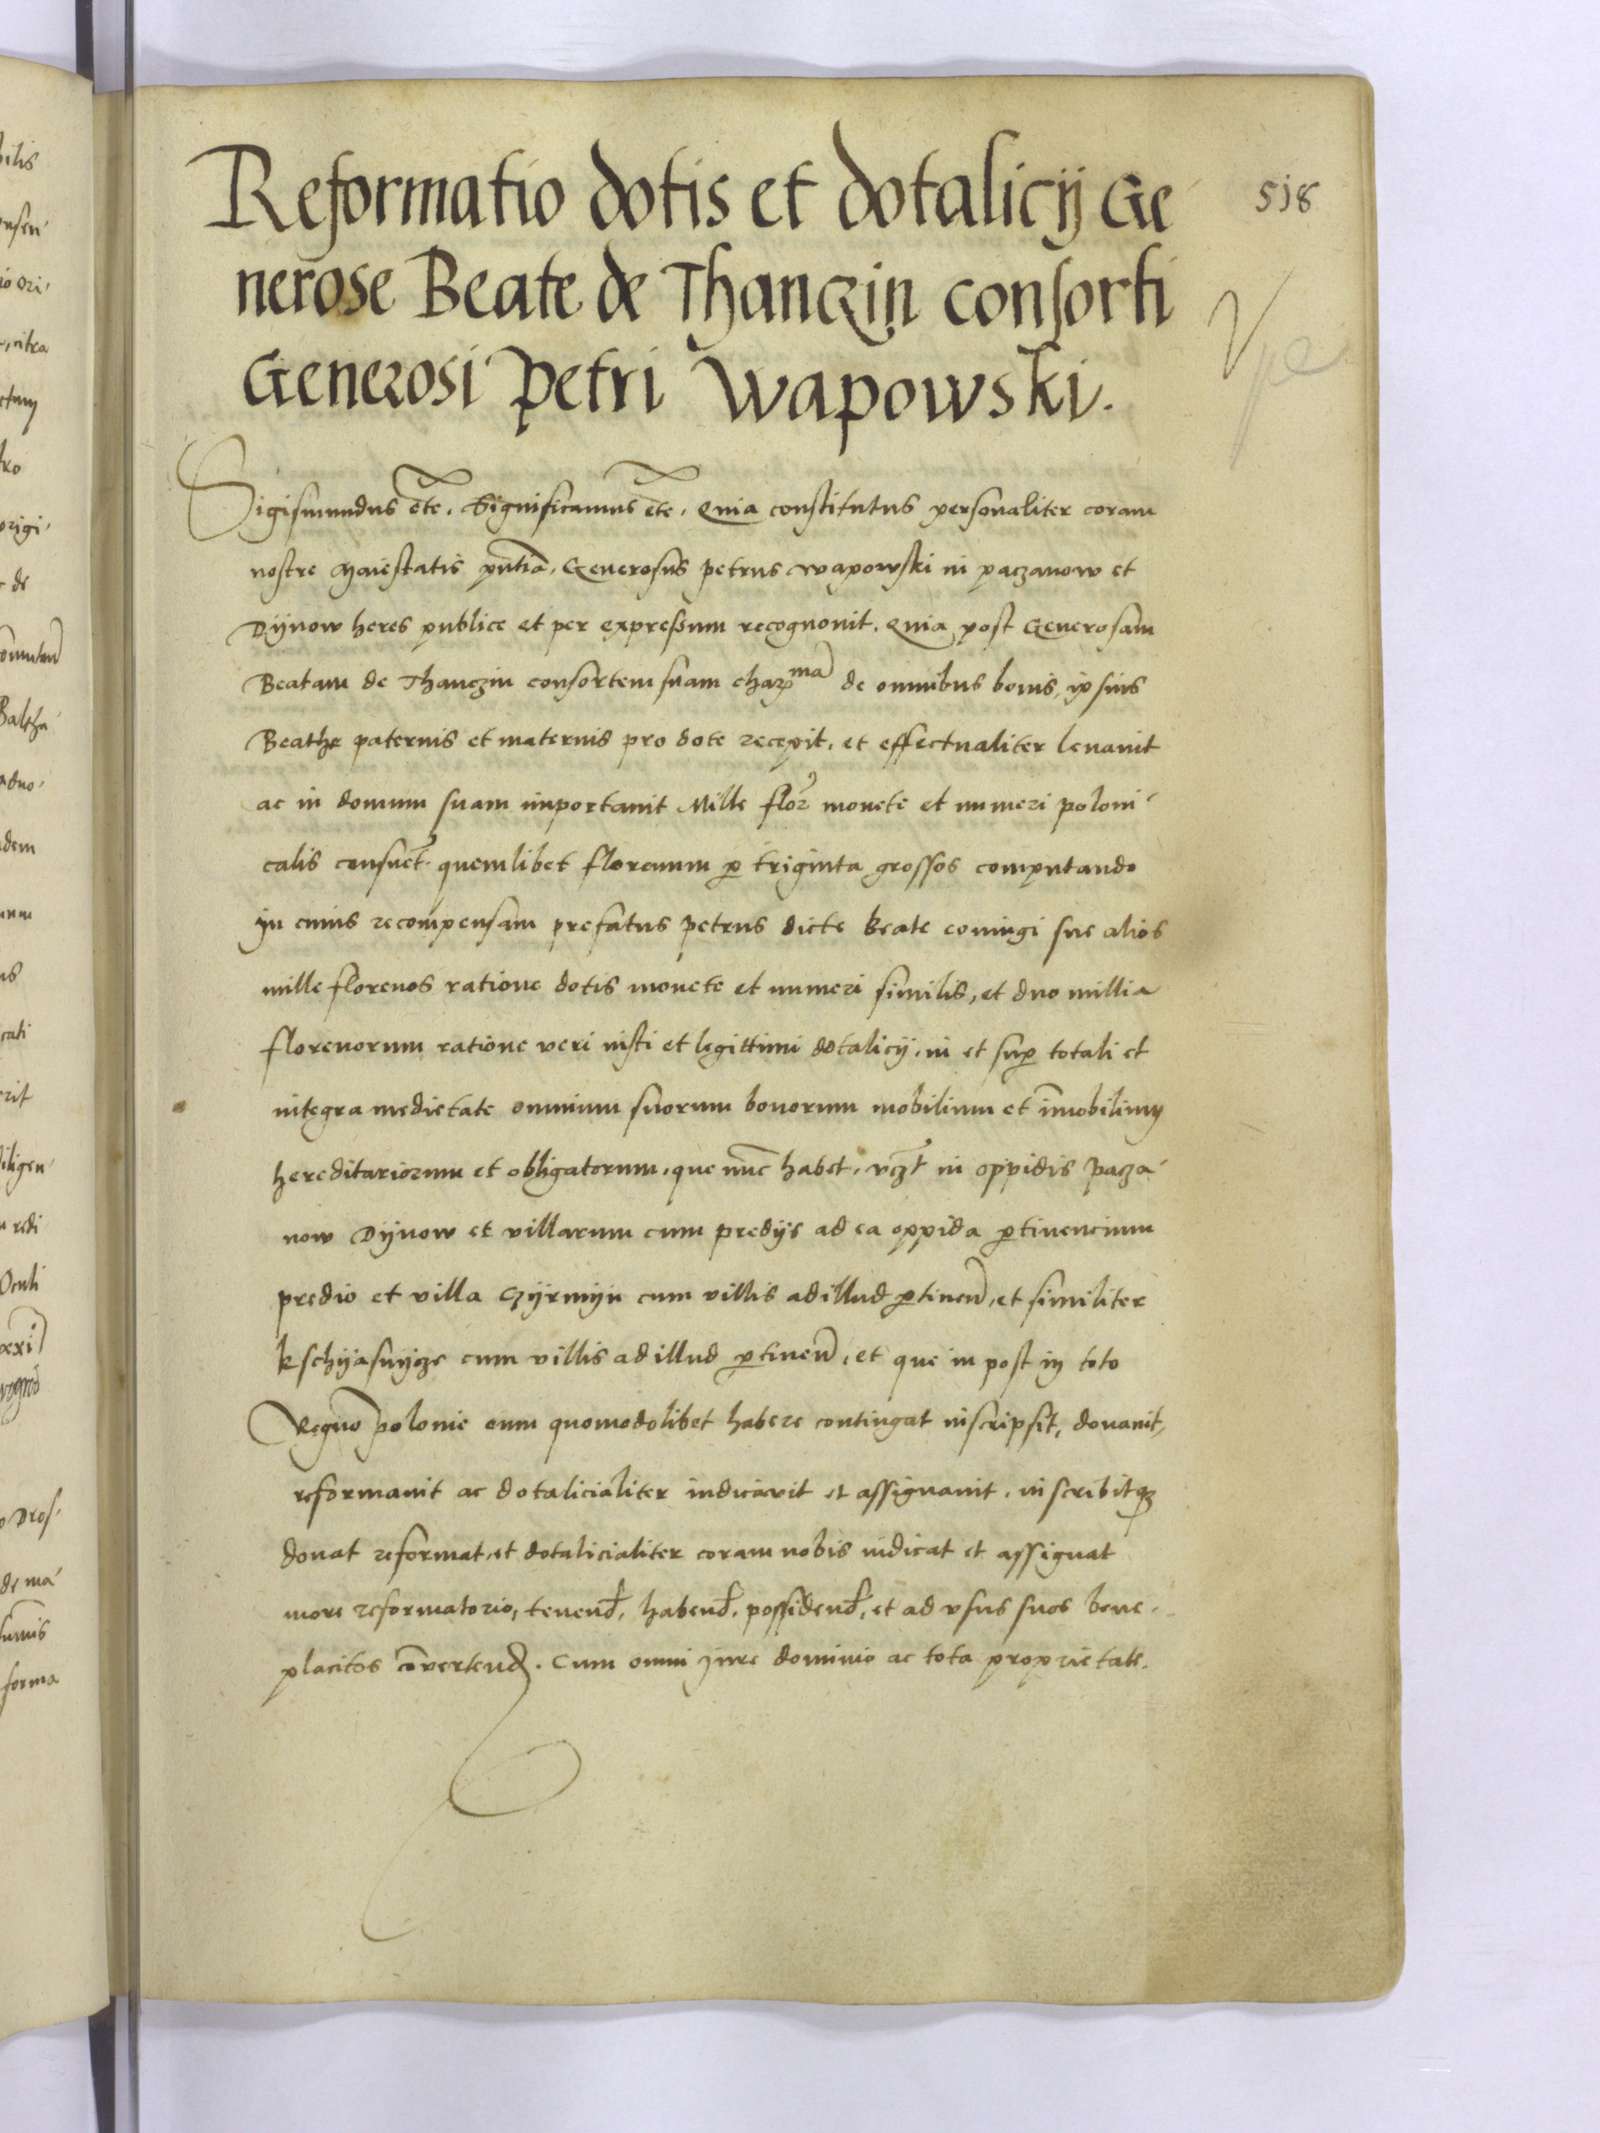 518
Reformatio dotis et dotalicij Ge
nerose Beate de Thanczin consorti
Generosi Petri Wapowski.
Sigismundus etc. Significamus etc. Quia constitutus personaliter coram
nostre Maiestatis pntia. Generosus Petrus Wapowski in Paczanow et
Dijnow heres publice et per expressum recognouit. Quia post Generosam
Beatam de Thanczin consortem suam charmam de omnibus bonis, ipsius
Beathe paternis et maternis pro dote recepit, et effectualiter leuauit
ac in domum suam importauit Mille flor monete et numeri poloni
calis consuet. quemlibet florenum p triginta grossos computando
In cuius recompensam prefatus Petrus dicte Beate coniugi sue alios
mille florenos ratione dotis monete et numeri similis, et duo millia
florenorum ratione veri iusti et legittimi dotalicij, in et sup totali et
integra medietate omnium suorum bonorum mobilium et imobilium
hereditariorum et obligatorum, que nunc habet, vczt in oppidis Pacza
now Dijnow et villarum cum predijs ad ea oppida ptinencium
predio et villa Czijrmijn cum villis ad illud ptinen, et similiter
Kschijasnijcze cum villis ad illud ptinen, et que in post in toto
Regno polonie eum quomodolibet habere contingat inscripsit, donauit,
reformauit ac dotalicialiter indicauit et assignauit, inscribitq
donat reformat, et dotalicialiter coram nobis indicat et assignat
more reformatorio, tenend, habend, possidend, et ad vsus suos bene
placitos convertend. Cum omni jure dominio ac tota proprietate.